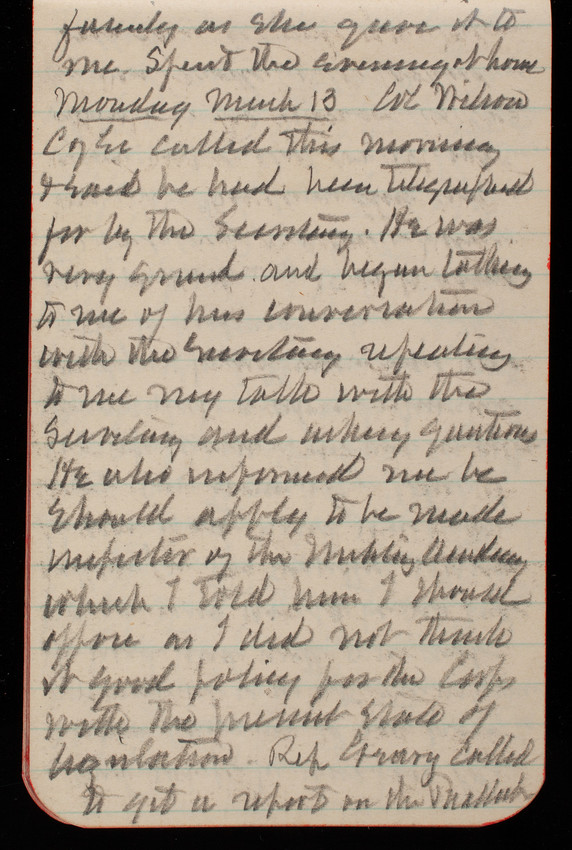 family as she gave it to
me. Spent the evening at home
Monday March 13 Col Wilson
C of E called this morning
& said he had been telegraphed
for by the Secretary. He was
very grand and began talking
to me of his conversation
with the Secretary repeating
to me my talk with the
Secretary and asking questions
He also informed me he
should apply to be made
inspector of the Military Academy
which I told him I should
oppose as I did not think
it good policy for the Corps
with the present state of
legislation. Rep Geary called
to get a report on the